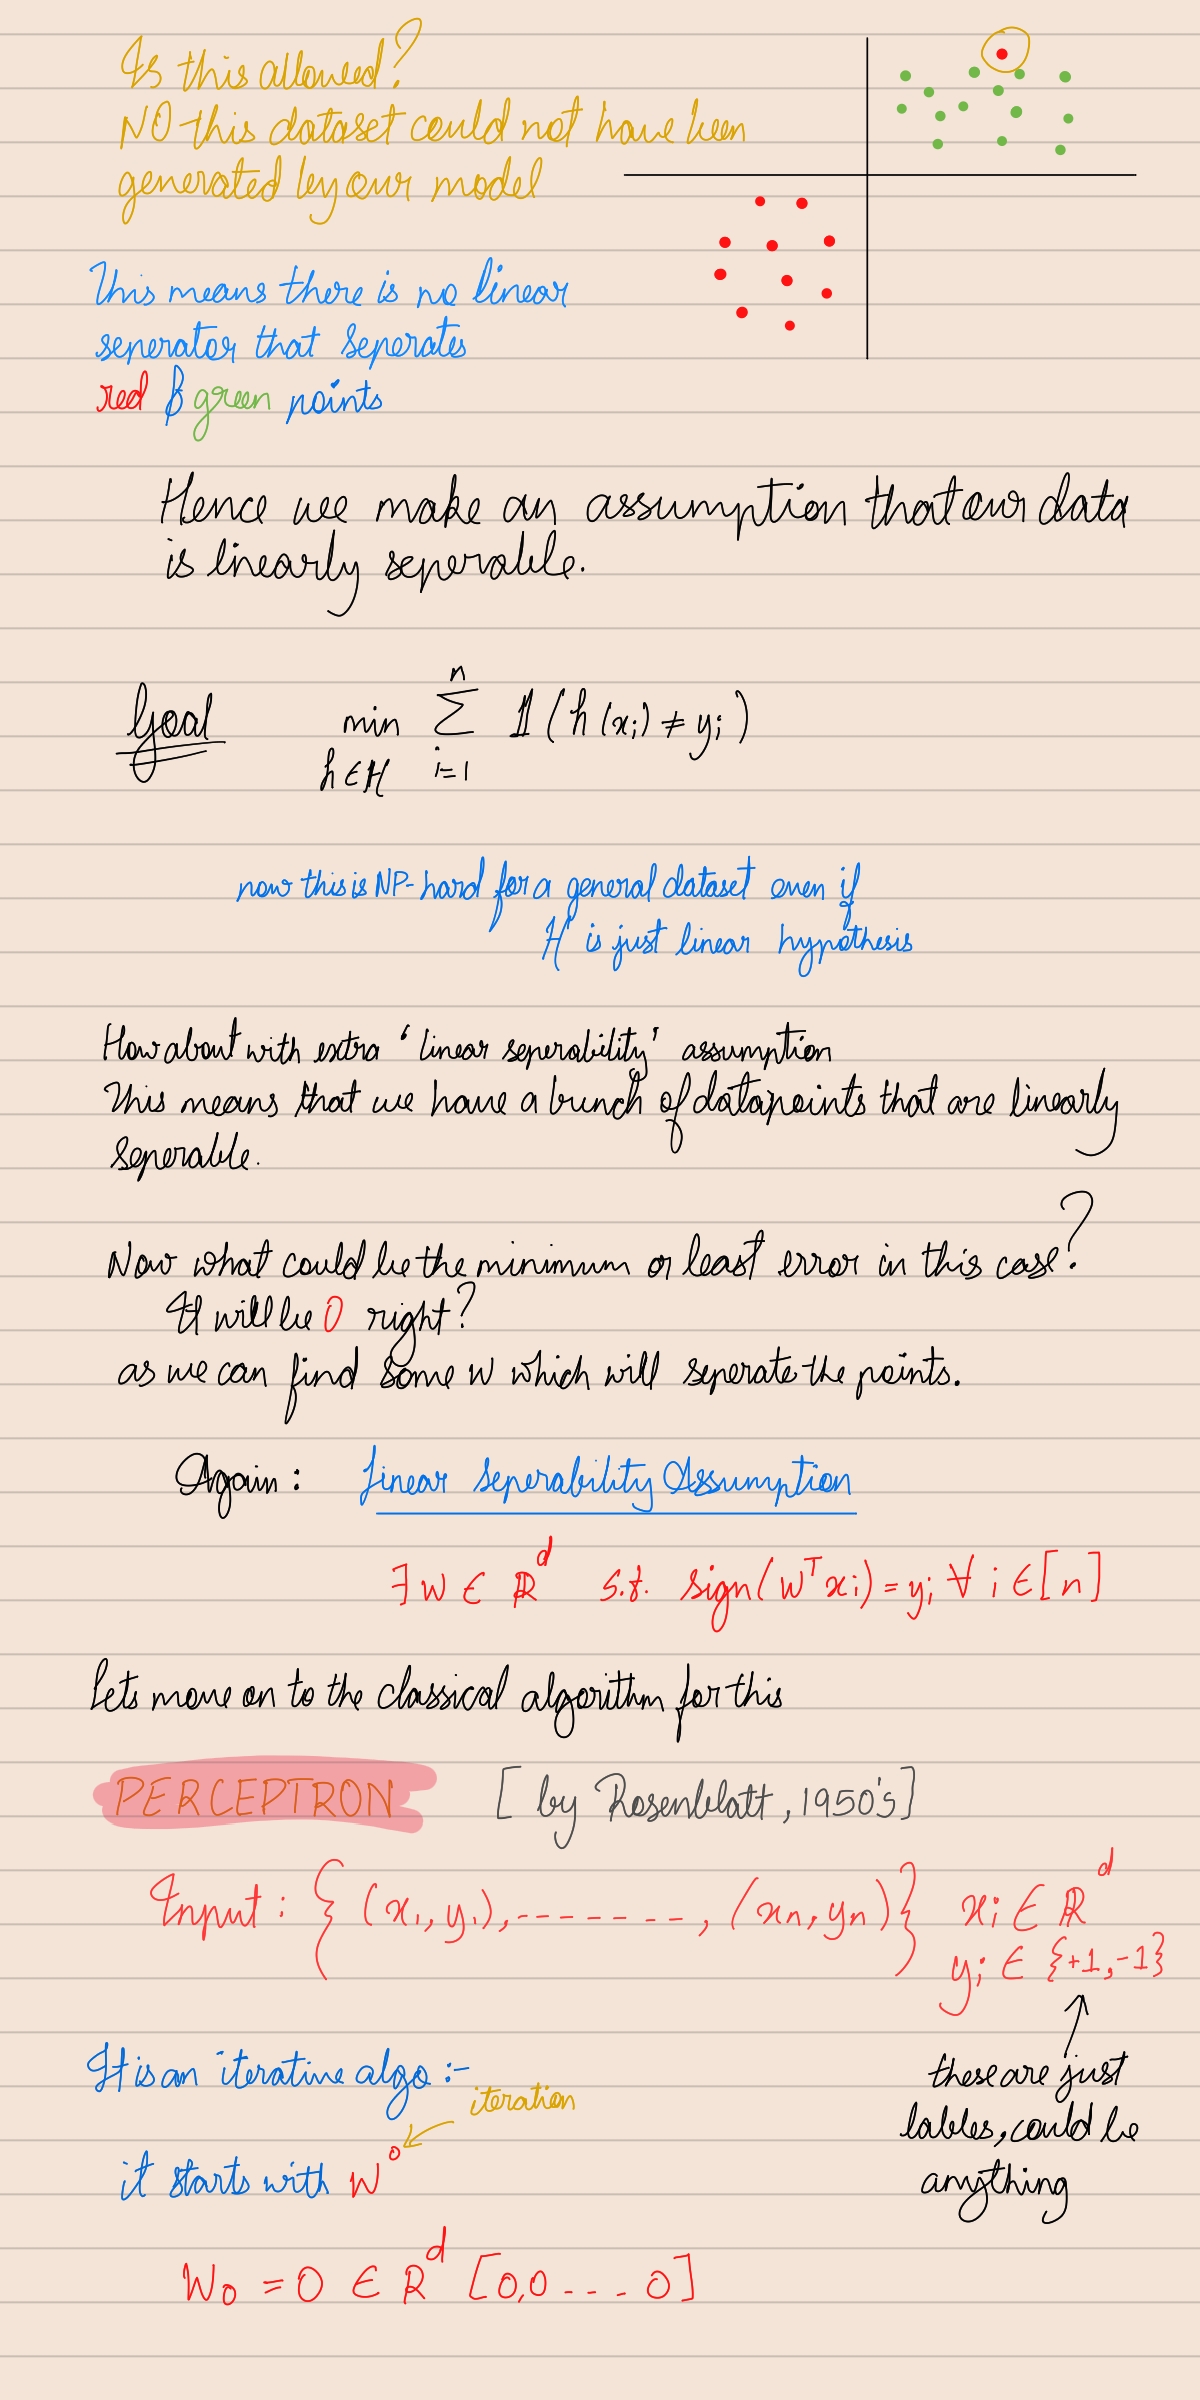 Is this allowed?
NO this dataset could not have been
generated by our model
This means there is no linear
seperator that seperates
red & green points
Hence we make an assumption that our data
is linearly seperable.
Goal min n ∑ i=1 𝟙(h(xᵢ) ≠ yᵢ)
h∈H
now this is NP-hard for a general dataset even if
H is just linear hypothesis
How about with extra ‘linear seperability’ assumption
This means that we have a bunch of datapoints that are linearly
seperable.
Now what could be the minimum or least error in this case?
It will be 0 right?
as we can find some w which will seperate the points.
Again: Linear Seperability Assumption
∃ w ∈ ℝᵈ s.t. sign(wᵀxᵢ) = yᵢ ∀ i ∈ [n]
Lets move on to the classical algorithm for this
PERCEPTRON [by Rosenblatt, 1950's]
Input: {(x₁, y₁),-------, (xn, yn)} xᵢ ∈ ℝᵈ
yᵢ ∈ {+1,-1}
these are just
lables, could be
anything
It is an iterative algo :-
iteration
it starts with W⁰
W₀ = 0 ∈ ℝᵈ [0,0 - - - 0]